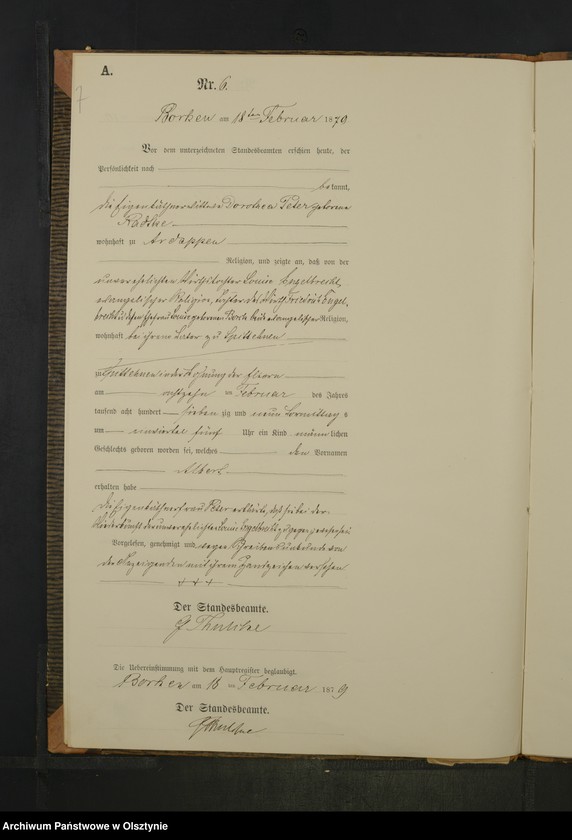 A.
7
Nr. 6.
Borken am 18ten Februar 1879
Vor dem unterzeichneten Standesbeamten erschien heute, der
Persönlichkeit nach
bekannt,
die Eigenthümerwittwe Dorothea Peter geborene
wohnhaft zu Ardappen
Religion, und zeigte an, daß von der
unverehelichten Wirthstochter Louise Engelbrecht,
evangelischer Religion, Tochter des Wirth Friedrich Engel-
brecht und dessen Ehefrau Louise geborenen beide evangelischer Religion,
wohnhaft bei ihrem Vater zu
zu in der Wohnung der Eltern
am achtzehn ten Februar des Jahres
tausend acht hundert sieben zig und neun Vormittags
um einviertel fünf Uhr ein Kind männlichen
Geschlechts geboren worden sei, welches den Vornamen
Albert
erhalten habe
die Eigenthümerfrau Peter erklärte, daß sie bei der
Niederkunft der unverehelichten Louise Engelbrecht zugegen gewesen
Vorgelesen, genehmigt und wegen Schreibensunkunde von
der Anzeigenden mit ihrem Handzeichen versehen
+++
Der Standesbeamte.
Die Uebereinstimmung mit dem Hauptregister beglaubigt.
Borken am 18 ten Februar 1879
Der Standesbeamte.
Archiwum Państwowe w Olsztynie